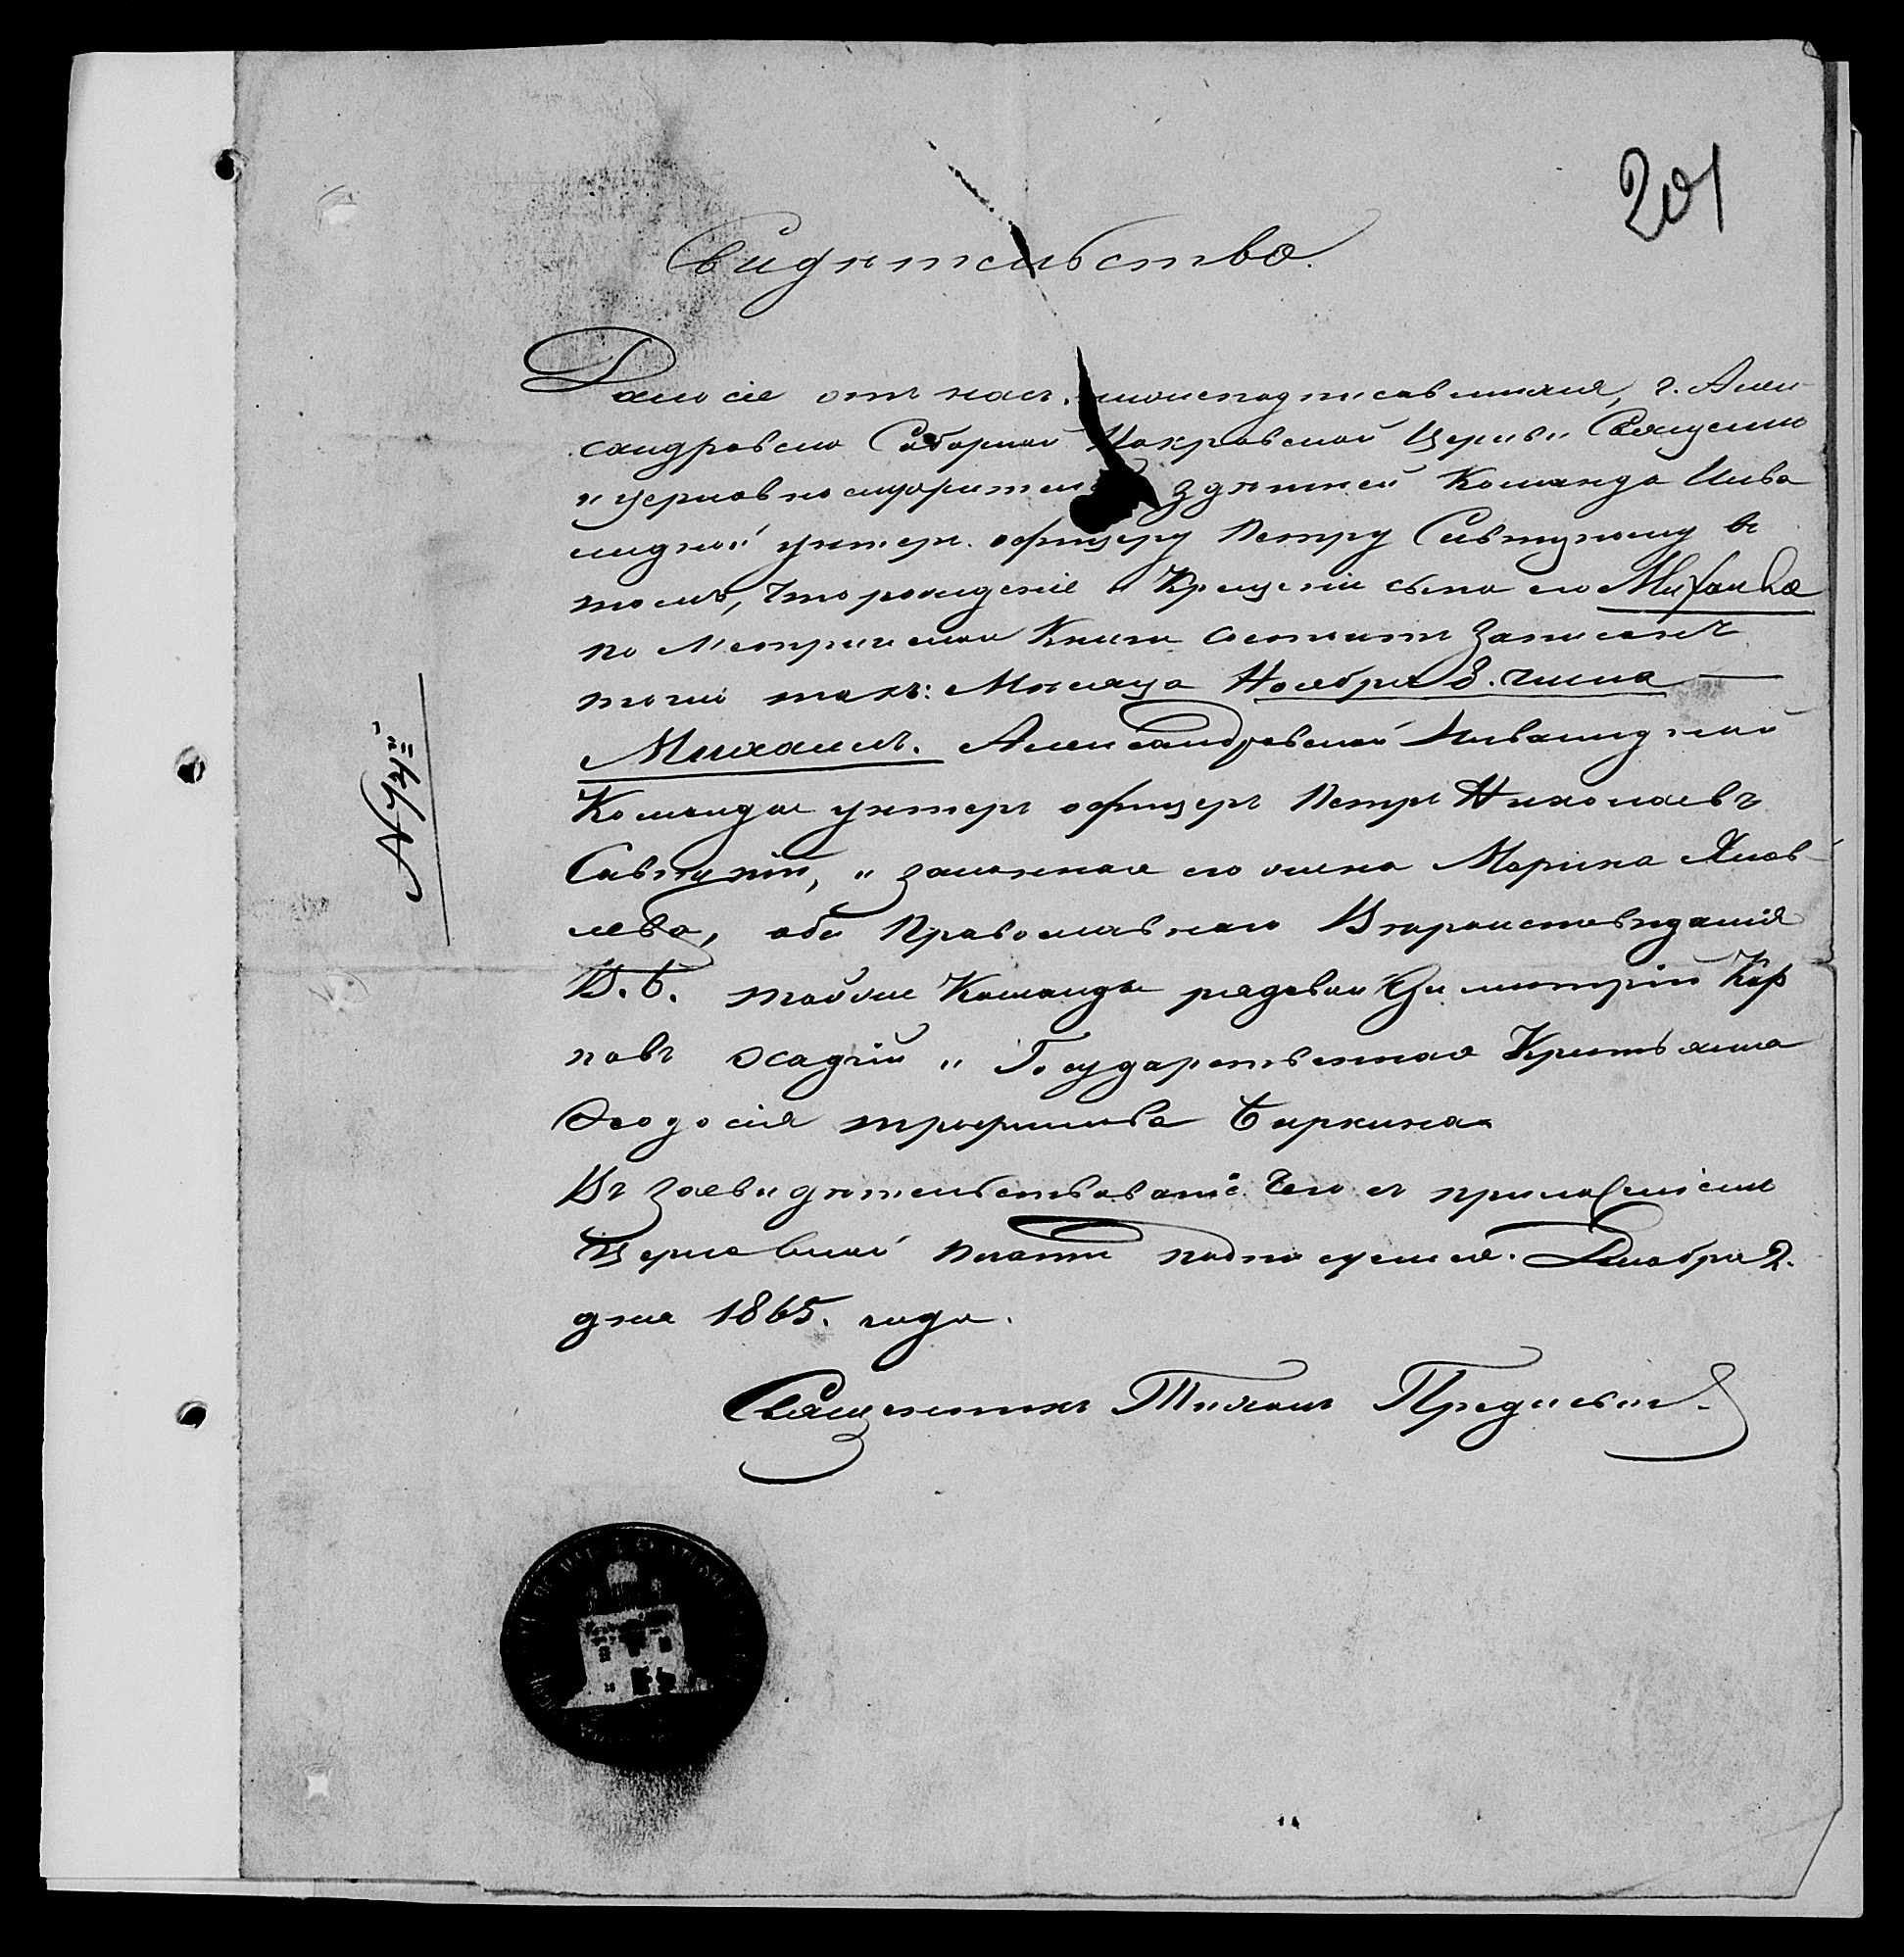 201
Свидѣтельство.
Дано сіе отъ насъ, нижеподписавшихся, г. Алек-
сандровска Соборной Покровской Церкви Священно
и церковнослужителей здѣшней Команды Инва
лидной унтеръ. офицеру Петру Савицкому въ
томъ, что рожденіе и Крещеніе сына его Михаила
по Метрической Книгѣ состоитъ записанъ
точно такъ: Мѣсяца Ноября 8. числа —
Михаилъ. Александровской Инвалидной
Команды унтеръ офицеръ Петръ Николаевъ
и законная его жена Марина Яков-
лева, оба Православнаго Вѣроисповѣданія
В. б. той же Команды рядовой Димитрій Кар
повъ Осадчій и Государственная Крестьянка
Ѳеодосія Трофимова
Въ засвидѣтельствованіе чего съ приложеніемъ
Церковной печати подписуемся. Декабря 2.
дня 1865. года.
Священникъ Тихонъ